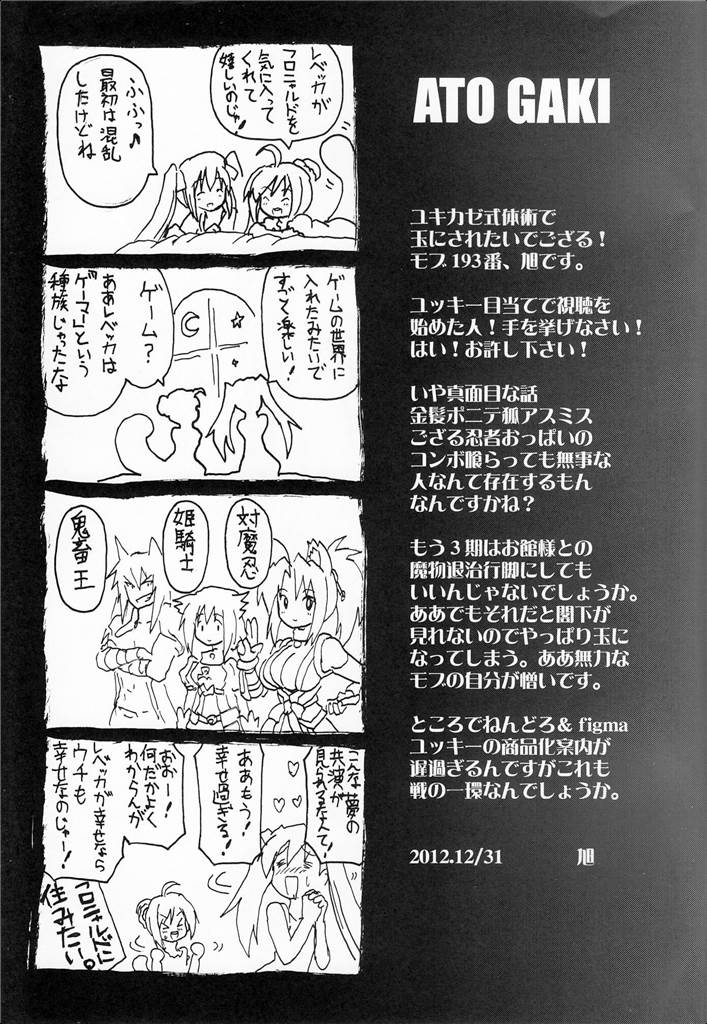 レベッカが
フロニャルドを
気に入って
くれて
嬉しいのじゃ!
ふふっ♪
最初は混乱
したけどね
ゲームの世界に
入れたみたいで
すごく楽しい!
ゲーム?
ああレベッカは
ゲーマーという
種族じゃったな
対魔忍
姫騎士
鬼畜王
こんな夢の
共演が
見られるなんて!
ああもう!
幸せ過ぎる!
おおー!
何だかよく
わからんが
レベッカが幸せなら
ウチも
幸せなのじゃー!
フロニャルドに
住みたい。
ATO GAKI
ユキカゼ式体術で
玉にされたいでござる!
モブ193番、旭です。
ユッキー目当てで視聴を
始めた人!手を挙げなさい!
はい!お許し下さい!
いや真面目な話
金髪ポニテ狐アスミス
ござる忍者おっぱいの
コンボ喰らっても無事な
人なんて存在するもん
なんですかね?
もう3期はお館様との
魔物退治行脚にしても
いいんじゃないでしょうか。
ああでもそれだと閣下が
見れないのでやっぱり玉に
なってしまう。ああ無力な
モブの自分が憎いです。
ところでねんどろ& figma
ユッキーの商品化案内が
遅過ぎるんですがこれも
戦の一環なんでしょうか。
2012.12/31 旭